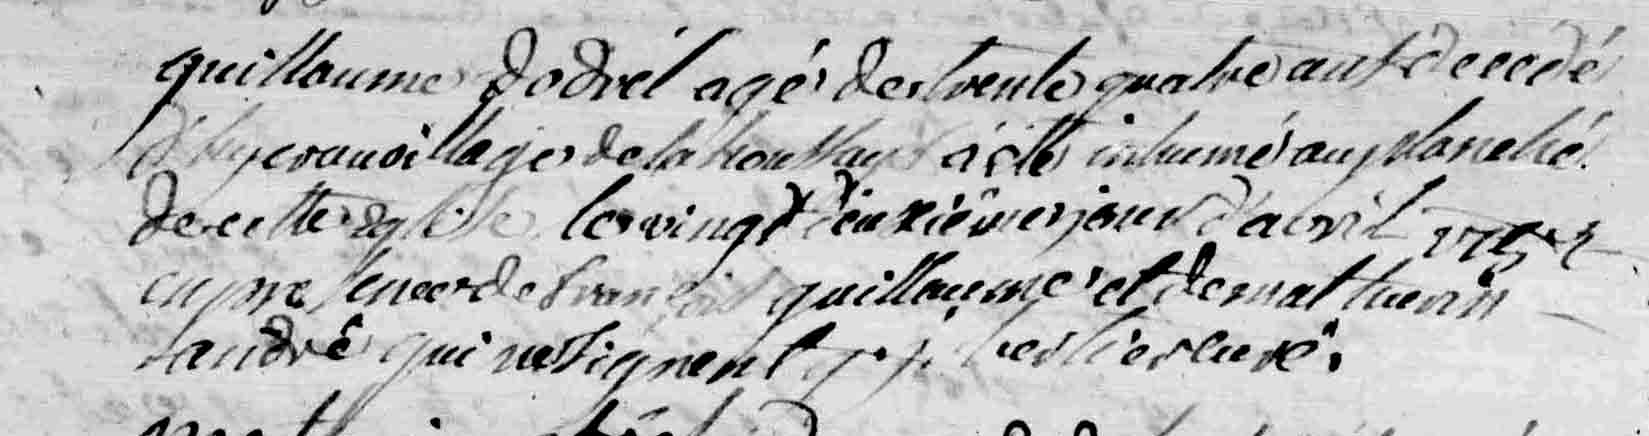 guillaume dodrél agé de trente quatre ans decedé
d'hyer au village de la houssays a été inhumé au planché
de cette eglise le vingt deuxiême jour d'avril
en presence de françois guillaume et de mathurin
andrê qui ne signent curé.